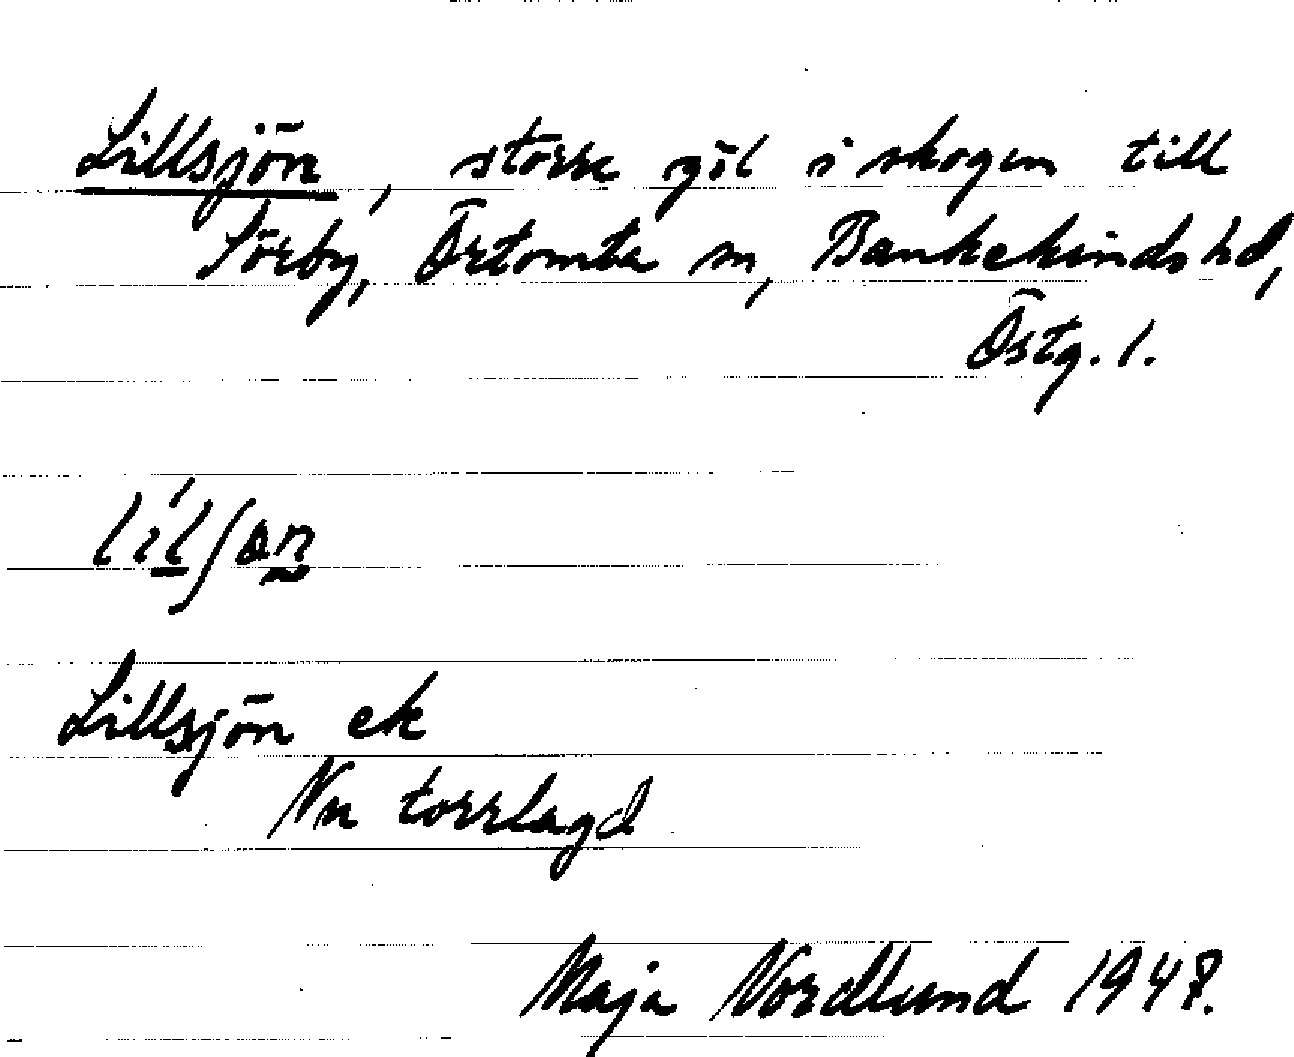 Lillsjön, större göl i skogen till
Sörby, Örtomta sn, Bankekinds hd,
Östg. l.
lílʃɷn
Lillsjön ek
Nu torrlagd
Maja Nordlund 1947.